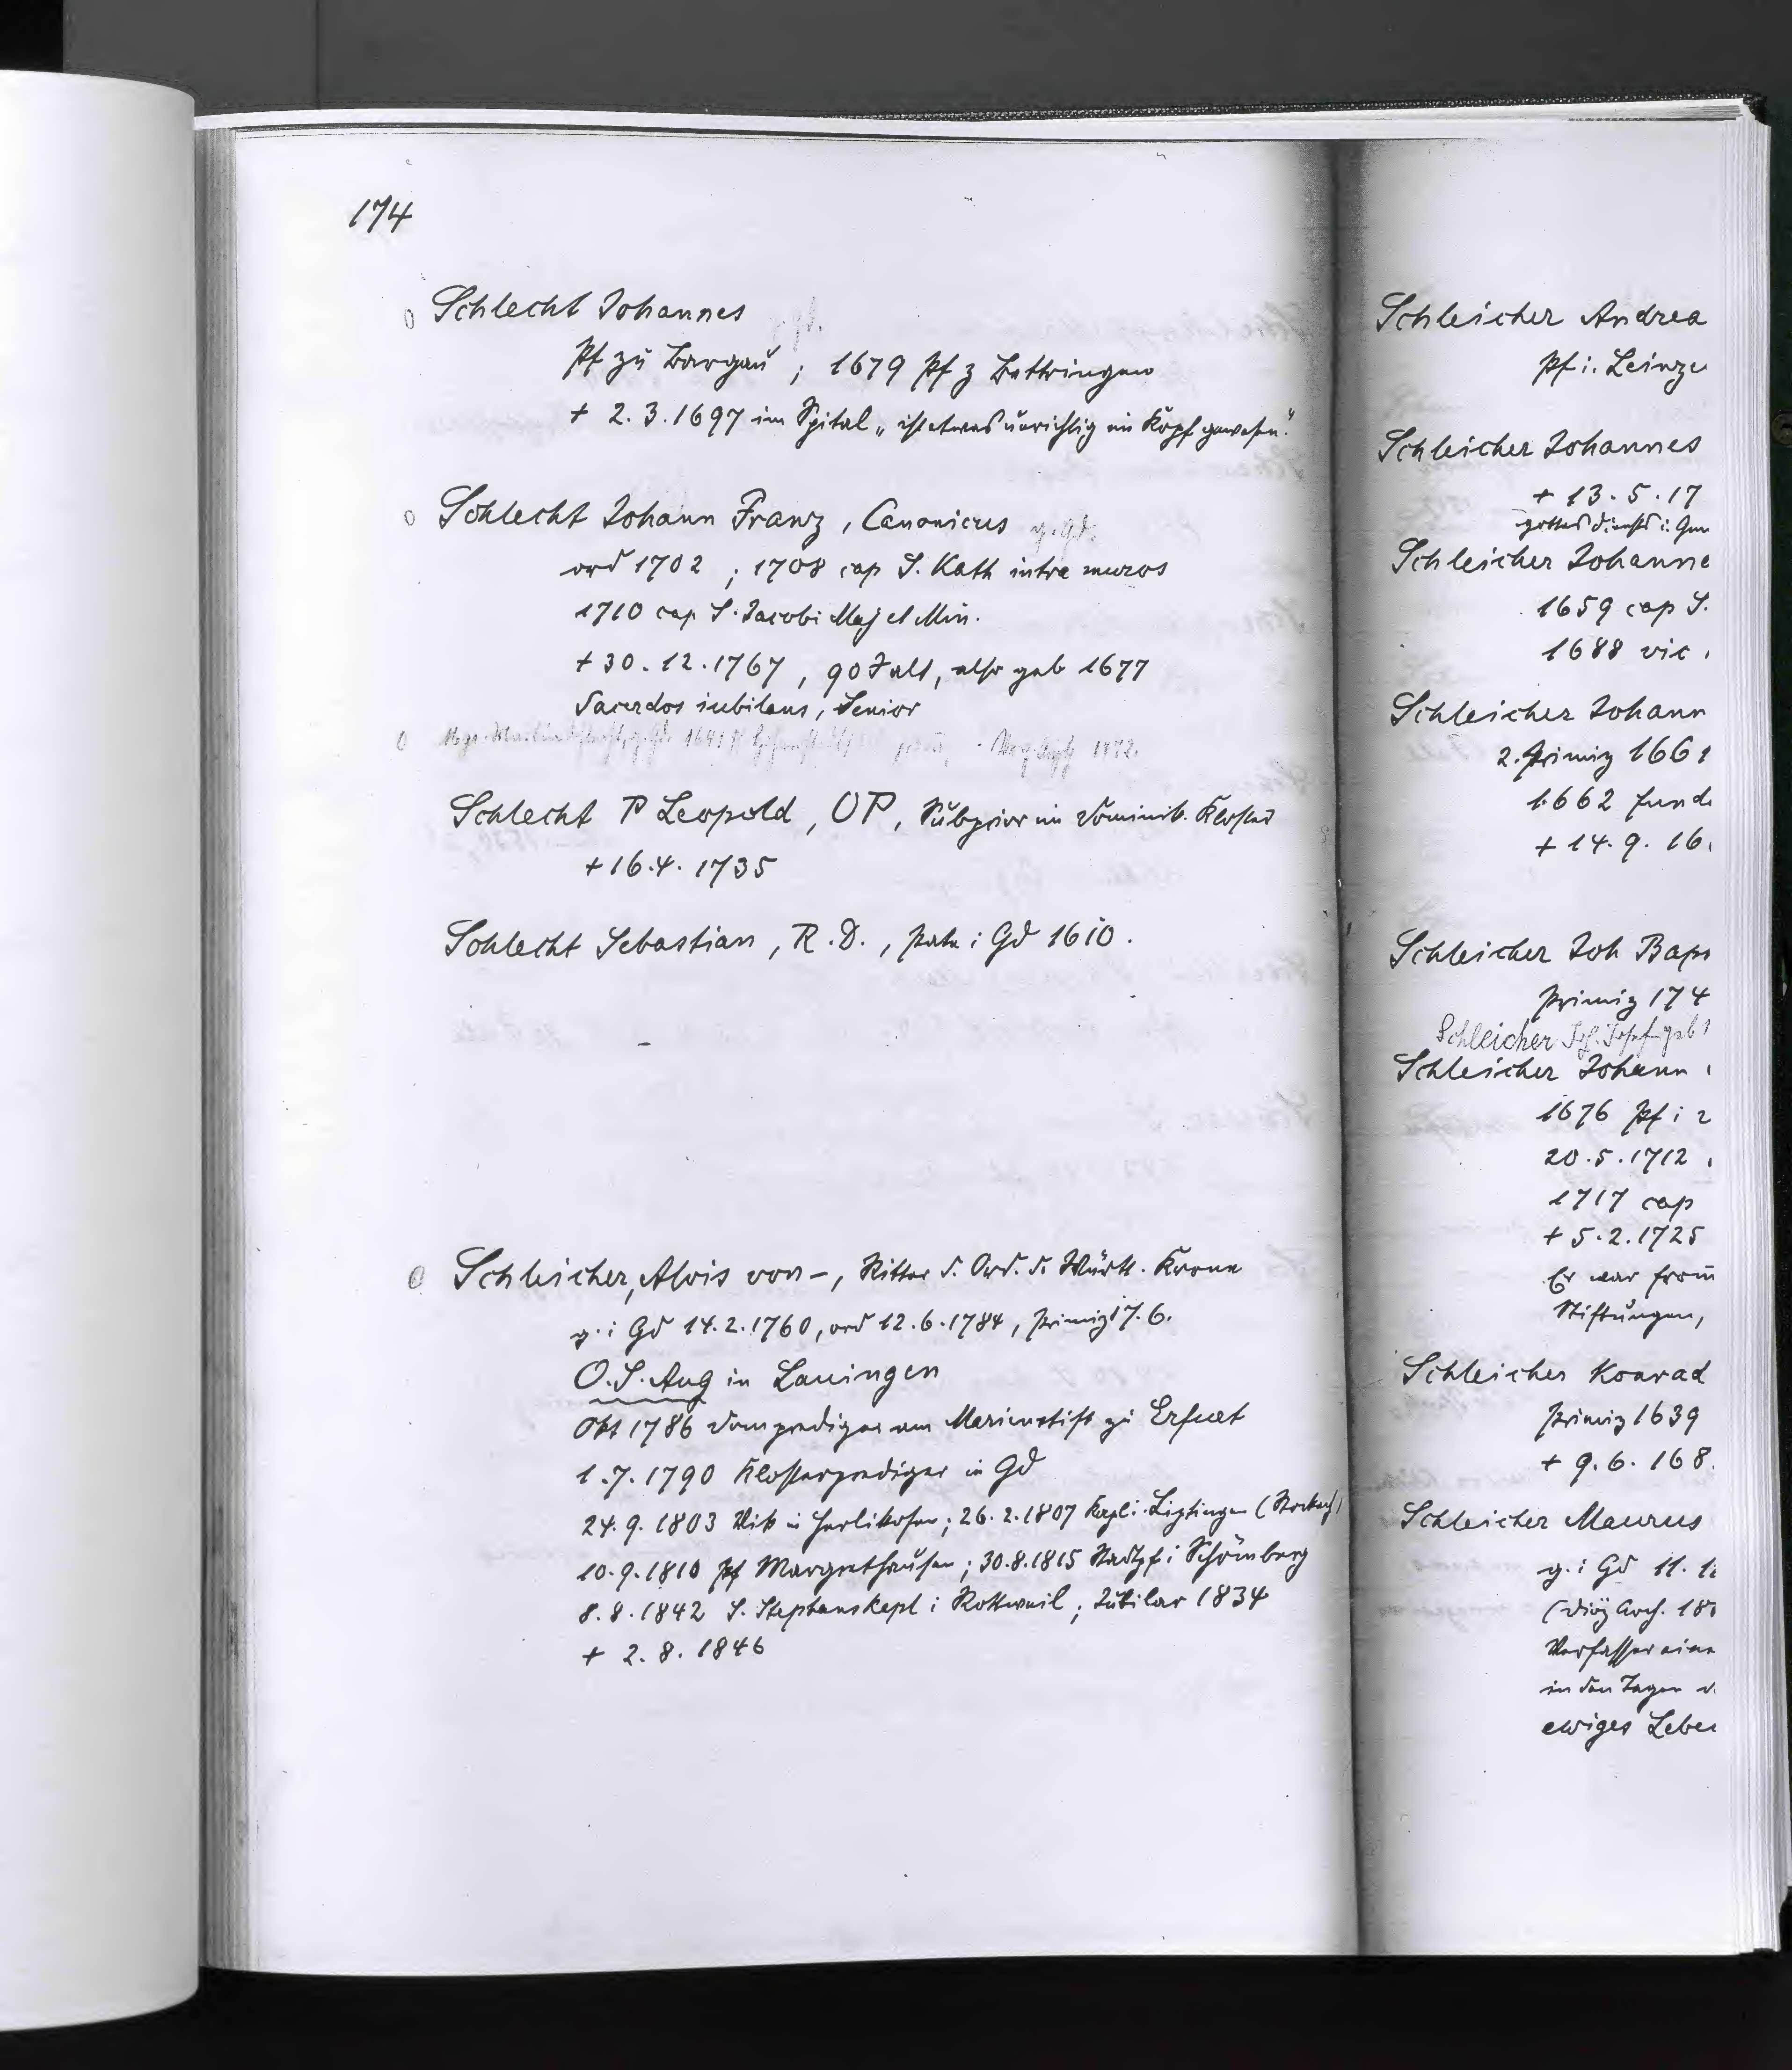 174
Schlecht Johannes
Pf zu Bargau ; 1679 Pf z Bettringen
+ 2. 3. 1697 im Spital „ ist etwas unrichtig im Kopf gewesen".
Schlecht Johann Franz, Canonicus g. Gd.
ord 1702 ; 1708 cap S. Kath intra muros
1710 cap S. Jacobi Maj et Min.
+ 30. 12. 1767, 90 J alt, also geb 1677
Sacerdos iubilans, Senior
Schlecht P Leopold, OP, Subprior im Dominik. Kloster
+ 16. 4. 1735
Schlecht Sebastian, R. D., Pate i Gd 1610.
Schleicher, Alois von -, Ritter d. Ord. d. Württ. Krone
g. i Gd 14. 2. 1760, ord 12. 6. 1784, Primiz 17. 6.
O. S. Aug in Lauingen
Okt 1786 Domprediger am Marienstift zu Erfurt
1. 7. 1790 Klosterprediger in Gd
24. 9. 1803 Vik in Herlikofen; 26. 2. 1807 Kapl i. Liptingen (Stockach)
10. 9. 1810 Pf Margrethausen; 30. 8. 1815 Stadtpf i Schömberg
8. 8. 1842 S. Stephanskapl i Rottweil; Jubilar 1834
+ 2. 8. 1846
Schleicher Andrea
Pf i. Leinze
Schleicher Johannes
+ 13. 5. 17
gottesdienst i. Gm
Schleicher Johanne
1659 cap S.
1688 vic
Schleicher Johann
2. Primiz 1661
1662 fund
+ 14. 9. 16
Schleicher Joh Bap
Primiz 174
Schleicher Joh. Josef geb 1
Schleicher Johann
1676 Pf i
20. 5. 1712
1717 cap
+ 5. 2. 1725
Er war from
Stiftungen,
Schleicher Konrad
Primiz 1639
+ 9. 6. 168
Schleicher Maurus
g. i Gd 11. 1
(Diöz Arch. 18
Verfasser eine
in den Tagen d.
ewiges Lebe